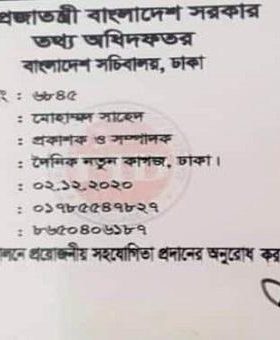 প্রজাতন্ত্রী বাংলাদেশ সরকার
তথ্য অধিদফতর
বাংলাদেশ সচিবালয়, ঢাকা
: ৬৮৪৫
: মোহাম্মদ সাহেদ
: প্রকাশক ও সম্পাদক
: দৈনিক নতুন কাগজ, ঢাকা।
: ০২.১২.২০২০
: ০১৭৮৫৫৪৭৮২৭
: ৮৬৫০৪০৬১৮৭
প্রয়োজনীয় সহযোগিতা প্রদানের অনুরোধ করা